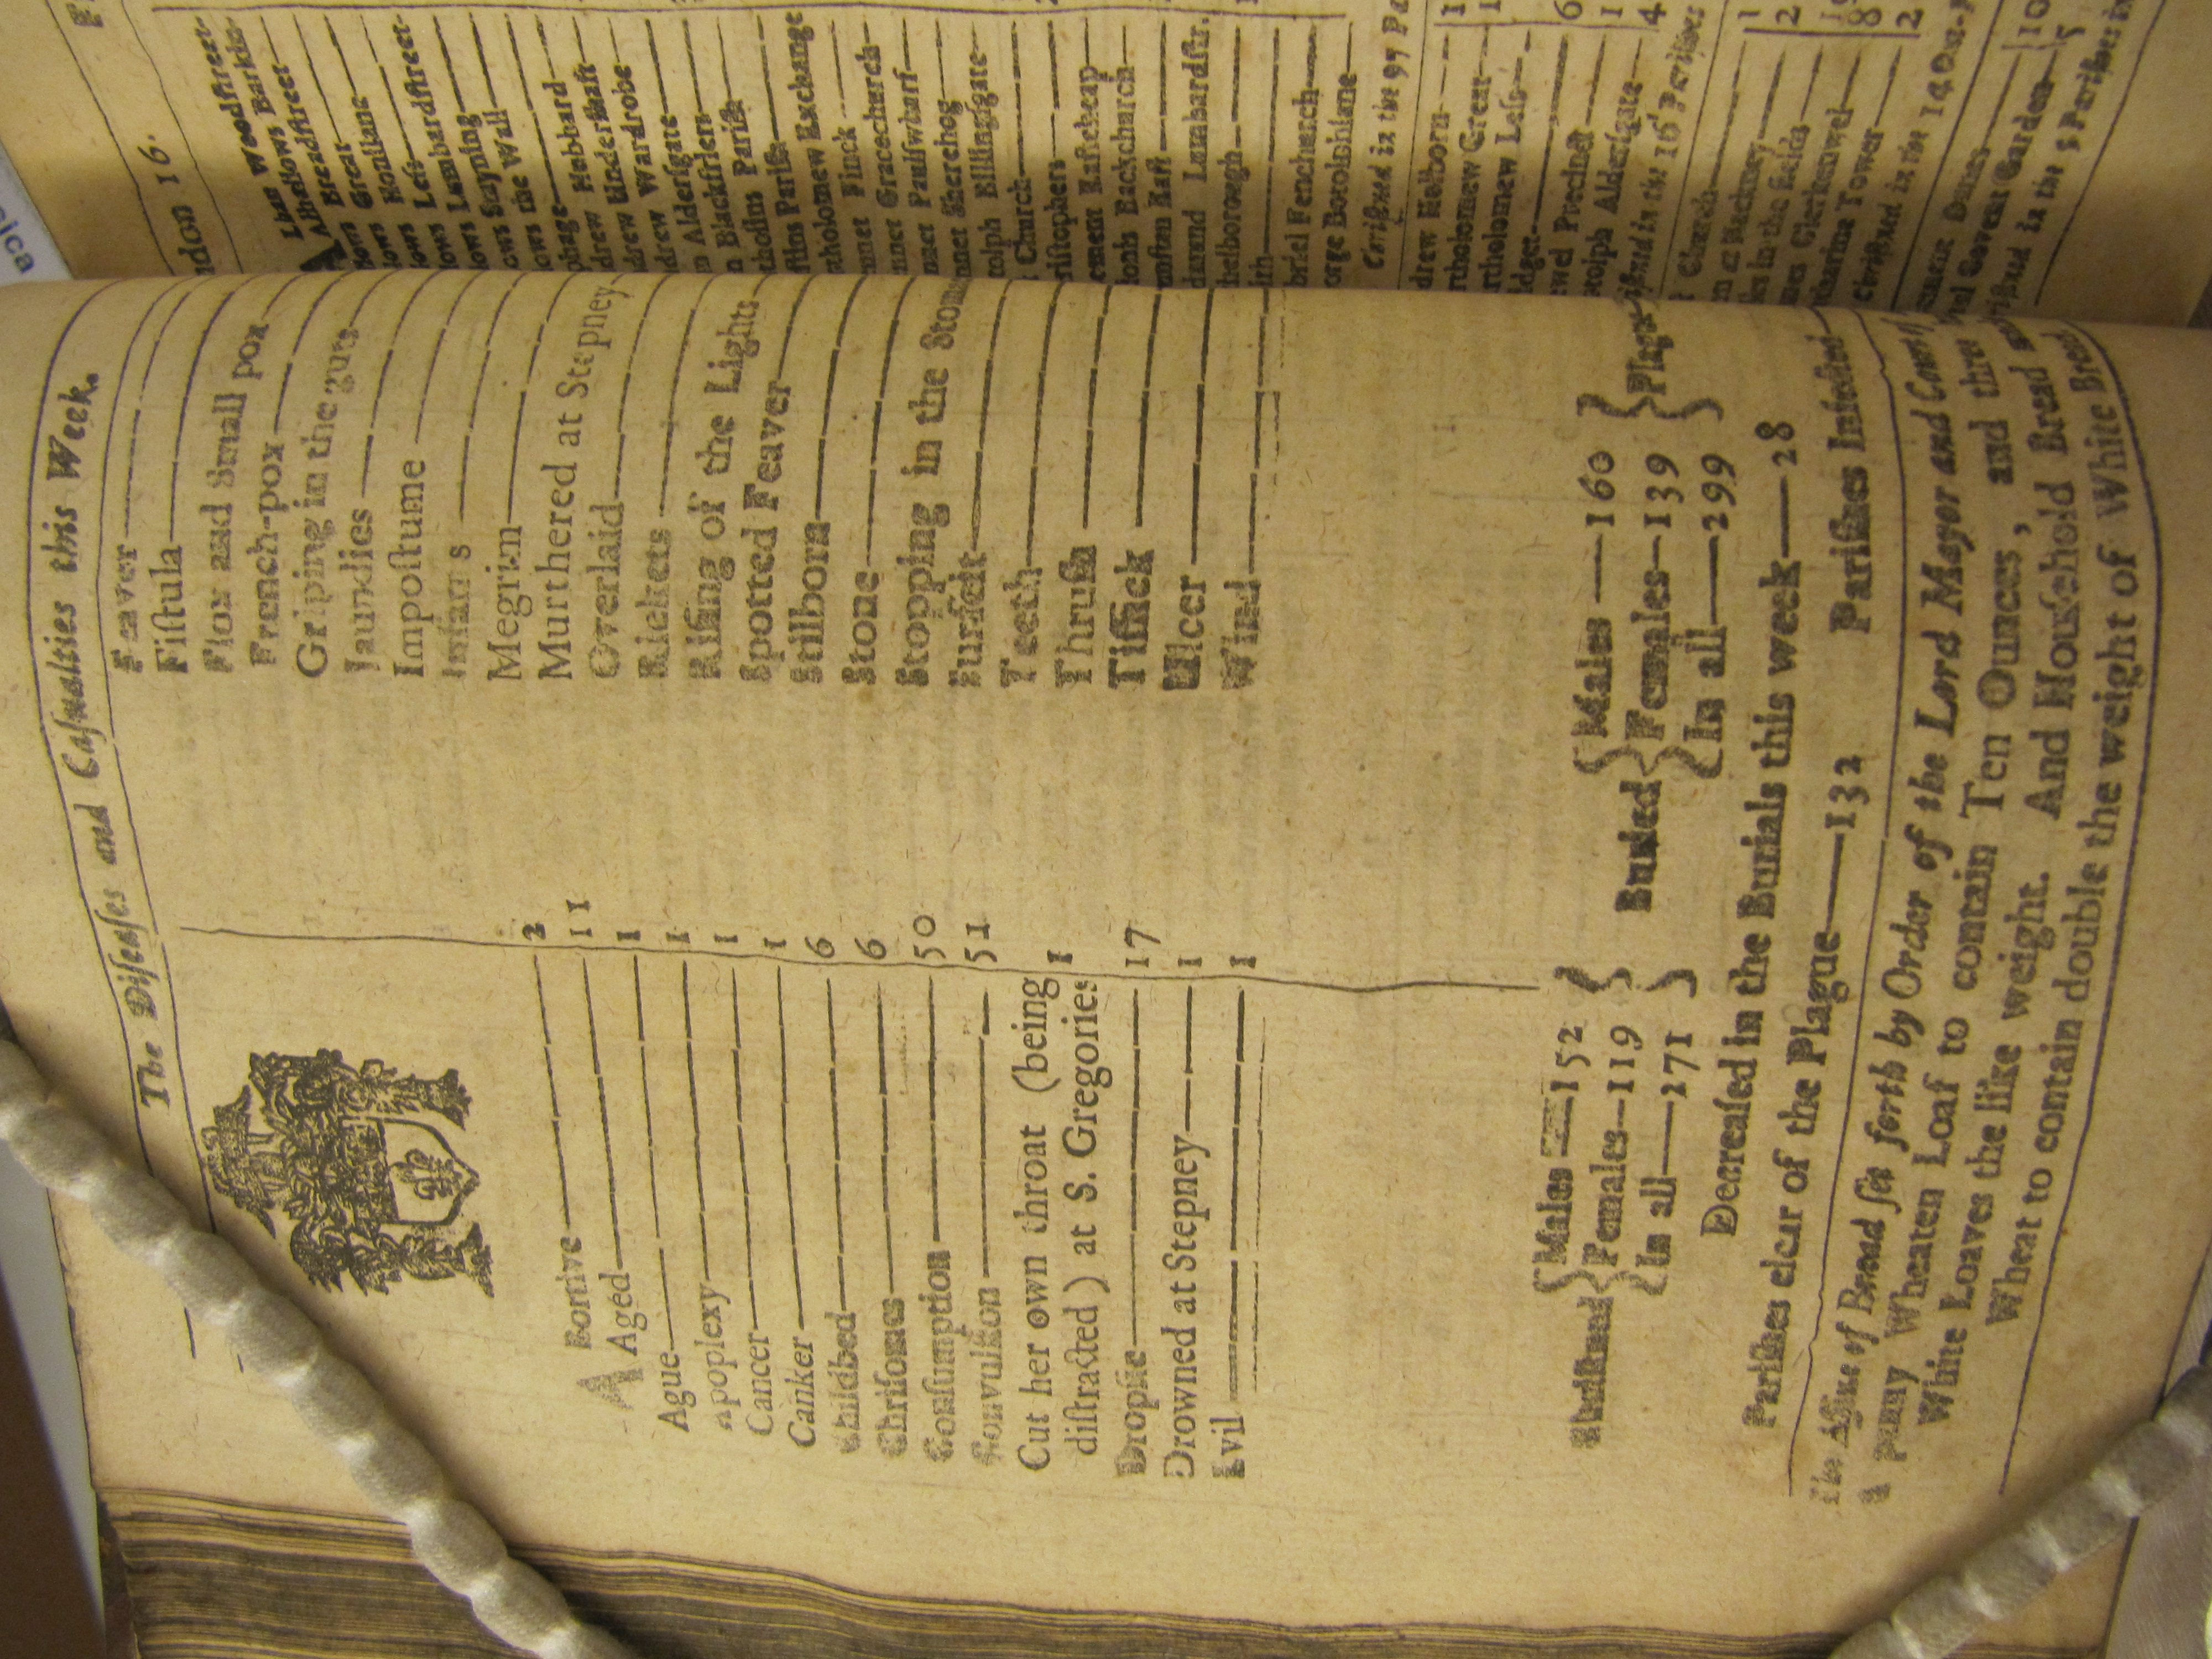 The Diſeaſes and Caſualties this Week.
A Bortive 2
Aged 11
Ague 1
Apoplexy 1
Cancer 1
Canker 1
Childbed 6
Chriſomes 6
Conſumption 50
Convulſion 51
Cut her own throat (being
diſtracted) at S. Gregories 1
Dropſie 17
Drowned at Stepney 1
Evil 1
Feaver
Fiſtula
Flox and Small pox
French-pox
Griping in the guts
Jaundies
Impoſtume
Infants
Megrim
Murthered at Stepney
Overlaid
Rickets
Riſing of the Lights
Spotted Feaver
Stilborn
Stone
Stopping in the Stom
Surfeit
Teeth
Thruſh
Tiſſick
Ulcer
Wind
Males 152
Chriſtned Females 119
In all 271
Males 160
Buried Females 139 Plague
In all 299
Decreaſed in the Burials this week 28
Pariſhes clear of the Plague 132 Pariſhes Infected
The Aſſize of Bread ſet forth by Order of the Lord Mayor and Court
a penny Wheaten Loaf to contain Ten Ounces, and three
White Loaves the like weight. And Houſehold Bread
Wheat to contain double the weight of White Bread
ndon 16.
lban Woodſtreet
Alhallows Barking
Breadſtreet
lows Great
lows Honilane
lows Leſs
lows Lumbardſtreet
lows Stayning
lows the Wall
phage
drew Hubbard
drew Underſhaft
drew Wardrobe
n Alderſgate
n Blackfriers
tholins Pariſh
ſtins Pariſh
artholomew Exchange
Finck
nnet Gracechurch
nnet Paulſwharf
nnet Sherehog
tolph Billingſgate
Church
riſtophers
ement Eaſtcheap
ionis Backchurch
unſtan Eaſt
dmund Lumbardſtr.
thelborough
ith
briel Fenchurch
orge Botolphlane
Chriſtned in the 97 Pa
drew Holborn 1
rtholomew Great 1
rtholomew Leſs
idget
ewel Precinct 6
otolph Alderſgate 1
4
iſtned in the 16 Pariſhes
Church 1
n at Hackney 2
es in the Fields
mes Clerkenwel 8
tharine Tower 2
Chriſtned in the 14 Out-
ment Danes 10
ul Covent Garden 5
riſtned in the 5 Pariſhes in